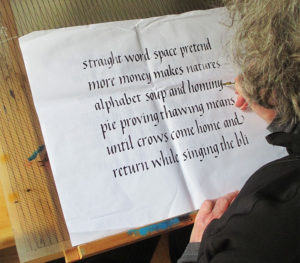 straight word space pretend
more money makes natures
alphabet soup and hominy
pie proving thawing means
until crows come home and
return while singing the bli